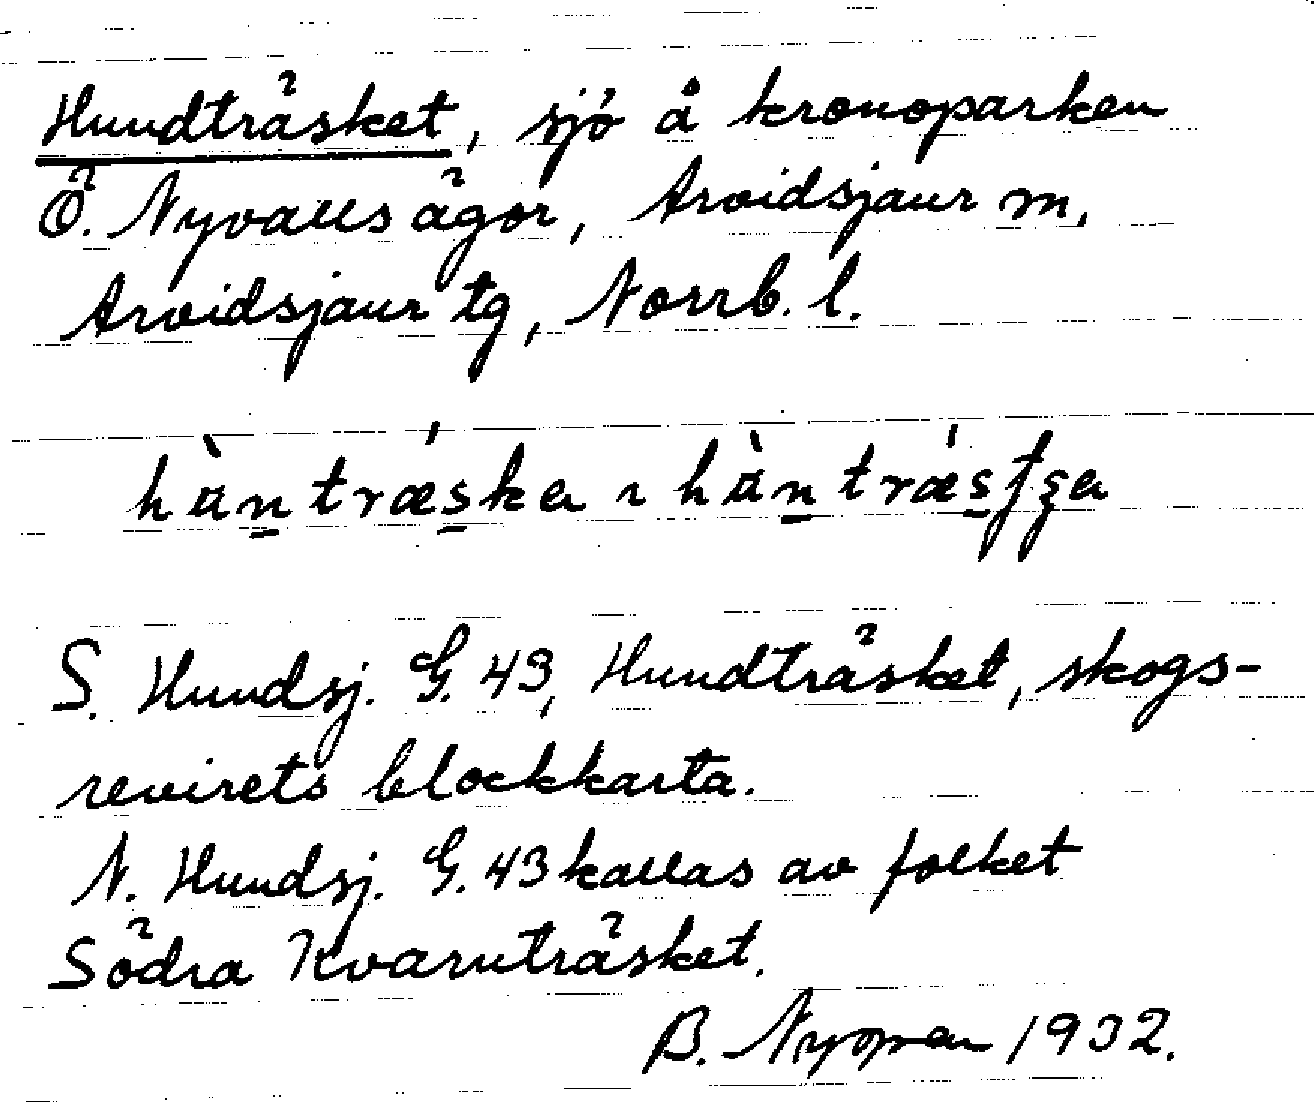 Hundträsket, sjö å kronoparken
Ö. Nyvalls ägor, Arvidsjaur m,
Arvidsjaur tg, Norrb. l.
hùntrǽska ı hùntrǽsʃʂa
S. Hundsj. G. 43, Hundträsket, skogs-
revirets blockkarta.
N. Hundsj. G. 43 kallas av folket
Södra Kvarnträsket.
B. Nyman 1932.